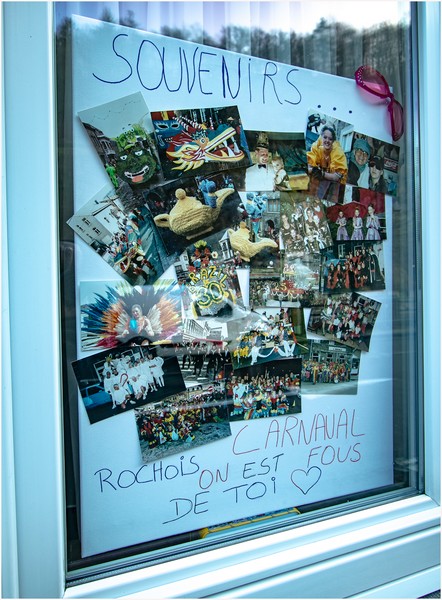 SOUVENIRS ...
CRAZY
30
CARNAVAL
ROCHOIS ON EST FOUS
DE TOI